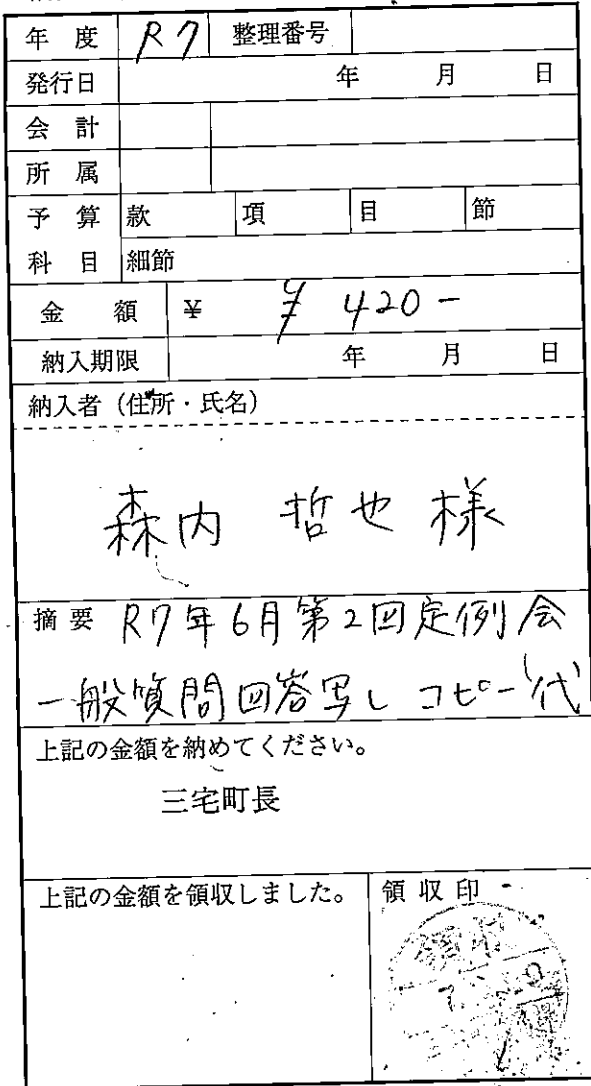 年 度 R7 整理番号
発行日 年 月 日
会 計
所 属
予 算 款 項 目 節
科 目 細節
金 額 ¥ ¥ 420-
納入期限 年 月 日
納入者(住所・氏名)
森内 哲也 様
摘 要 R7年6月第2回定例会
一般質問回答写し コピー代
上記の金額を納めてください。
三宅町長
上記の金額を領収しました。 領 収 印